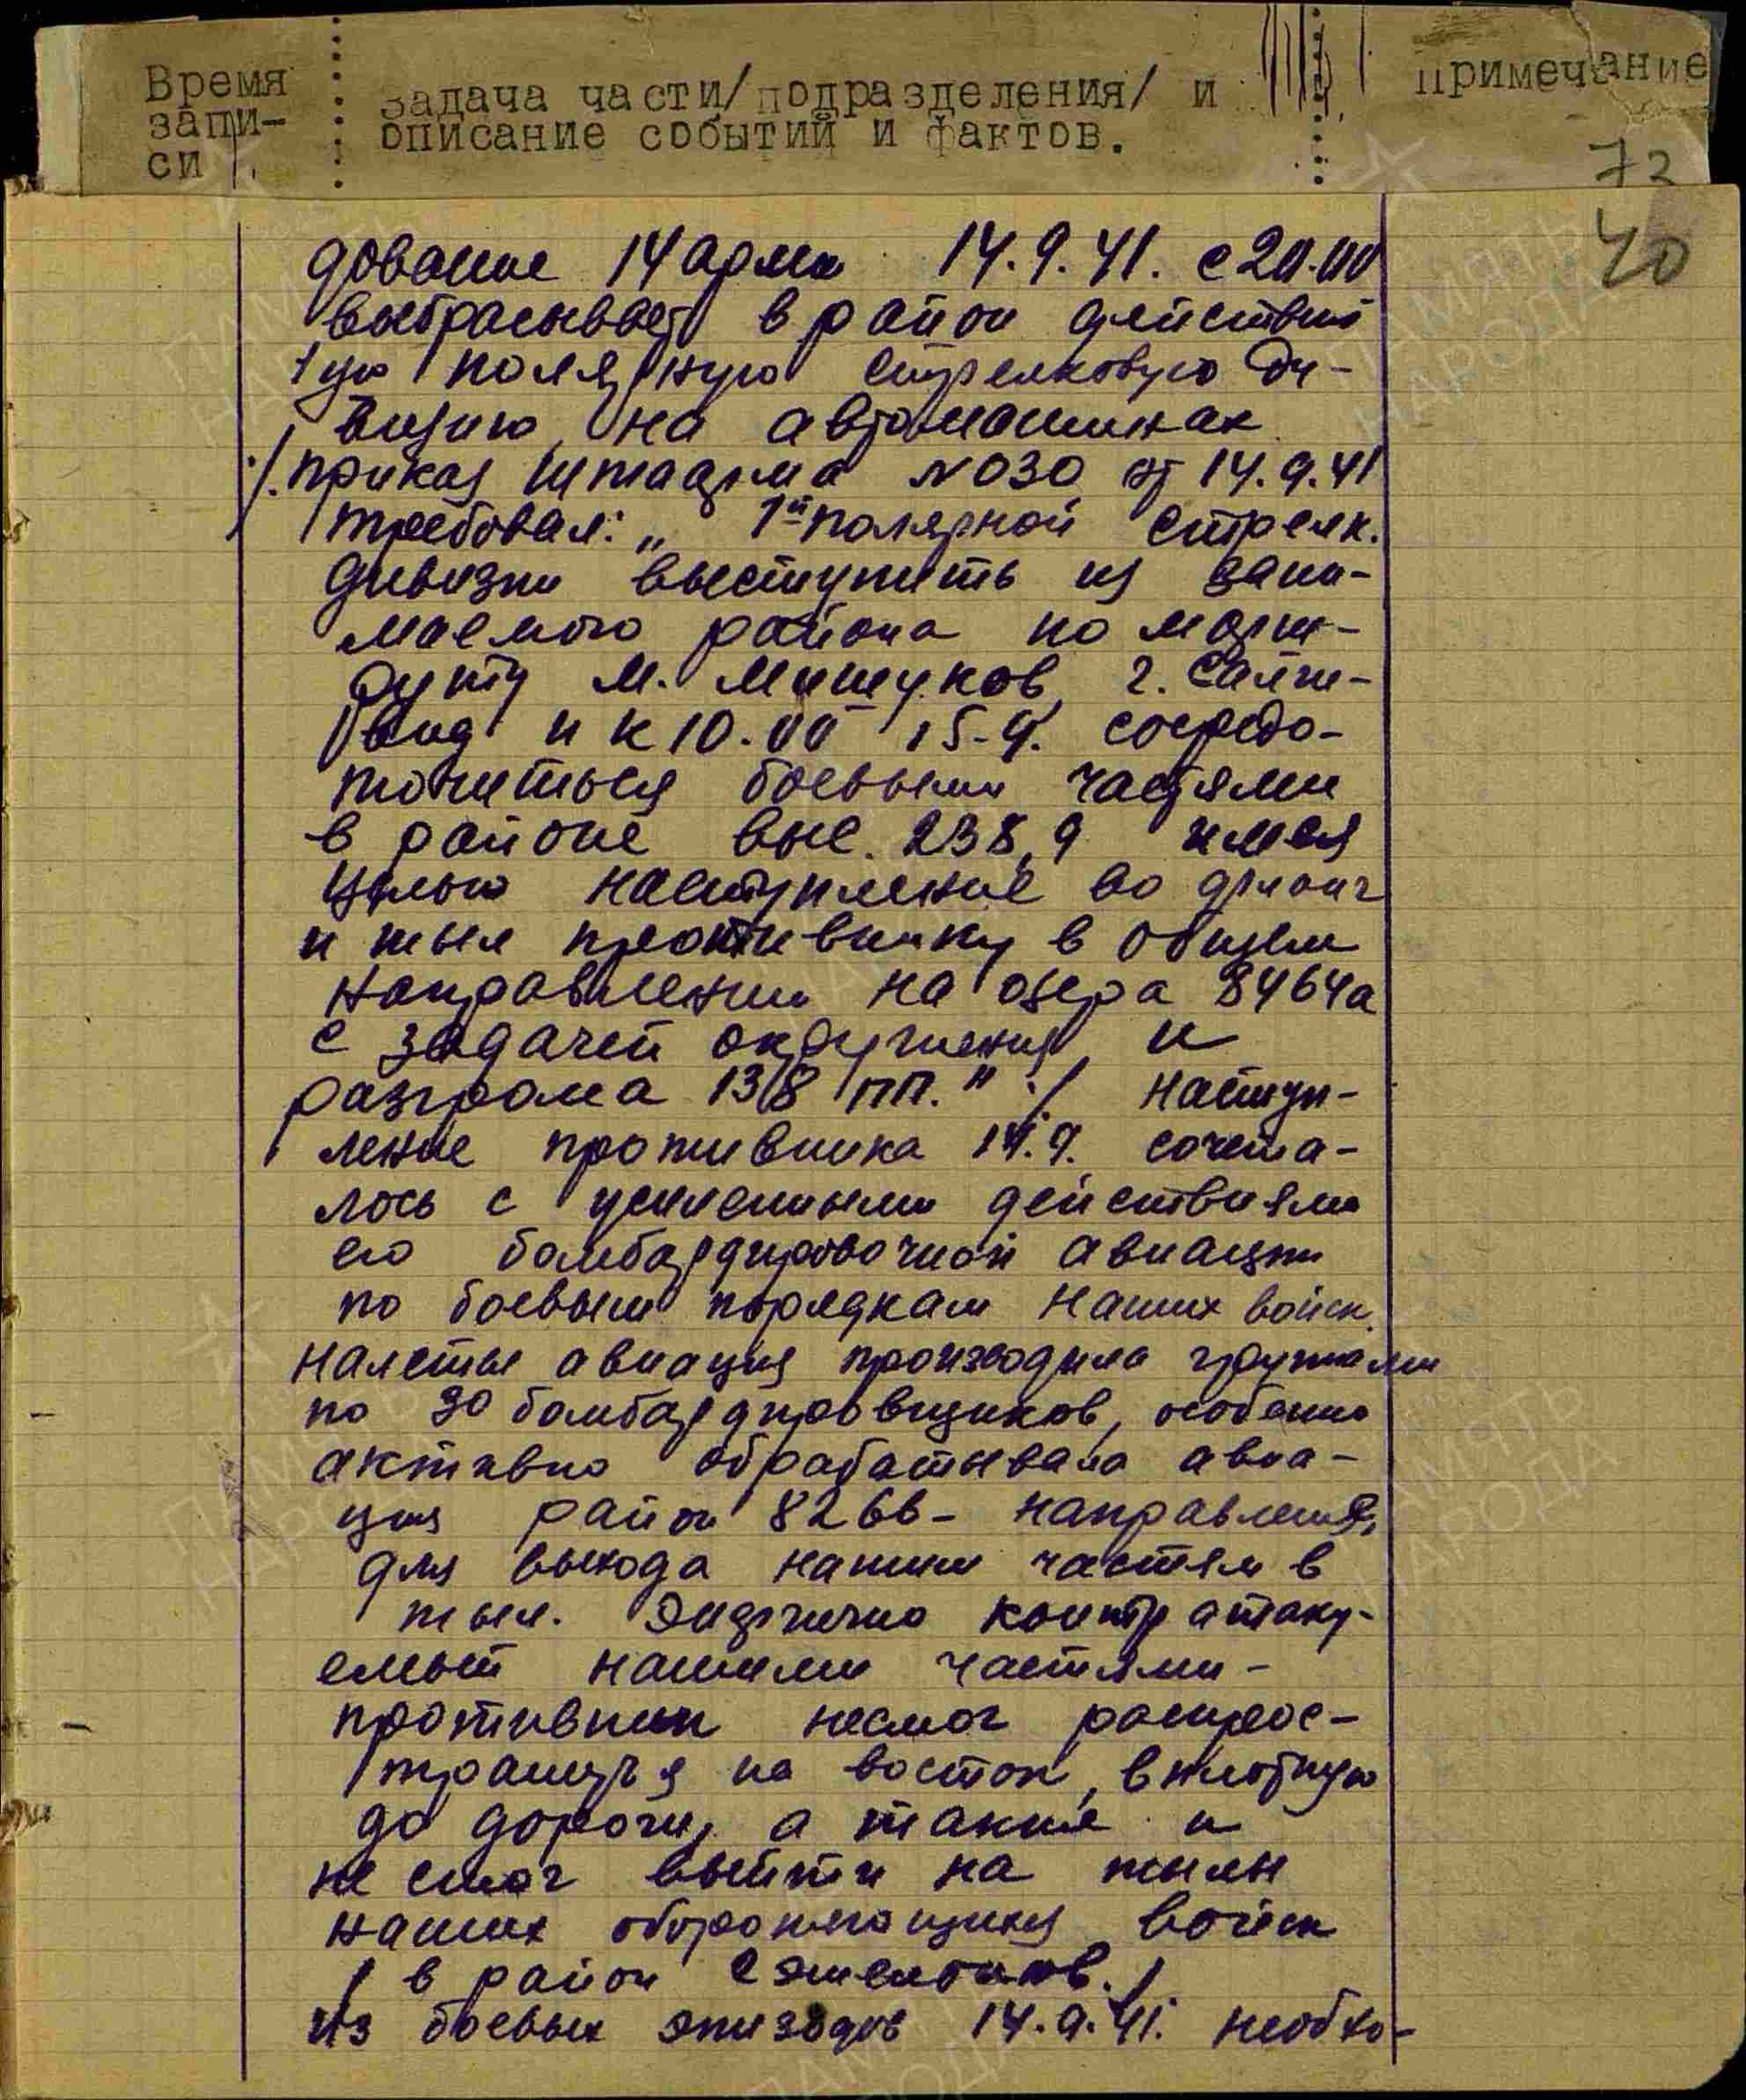 Время
запи-
си
задача части/подразделения/ и
описание событий и фактов.
примечание
73
40
дование 14 арми 14.9.41. с 20.00
выбрасывает в район действий
1ую полярную стрелковую ди-
визию на автомашинах
/.приказ штаарма N030 от 14.9.41
требовал: „ 1й полярной стрелк.
дивизии выступить из зани-
маемого района по марш-
руту М. Мишуков, г.
и к 10.00 15.9. сосредо-
точиться боевыми частями
в районе выс. 238,9 имея
целью наступление во фланг
и тыл противнику в общем
направлении на озера 8464а
с задачей окружения и
разгрома 138 ПП." ./ наступ-
ление противника 14.9. сочета-
лось с усиленными действиями
его бомбардировочной авиации
по боевым порядкам наших войск.
налеты авиация производила группами
по 30 бомбардировщиков, особенно
активно обрабатывала авиа-
ция район 8266- направления,
для выхода нашим частям в
тыл. Энергично контратаку-
емый нашими частями-
противник несмог распрос-
траниться на восток, вплотную
до дороги, а также и
не смог выйти на тылы
наших обороняющихся войск
/ в район 2 эшелонов./
из боевых эпизодов 14.9.41. необхо-